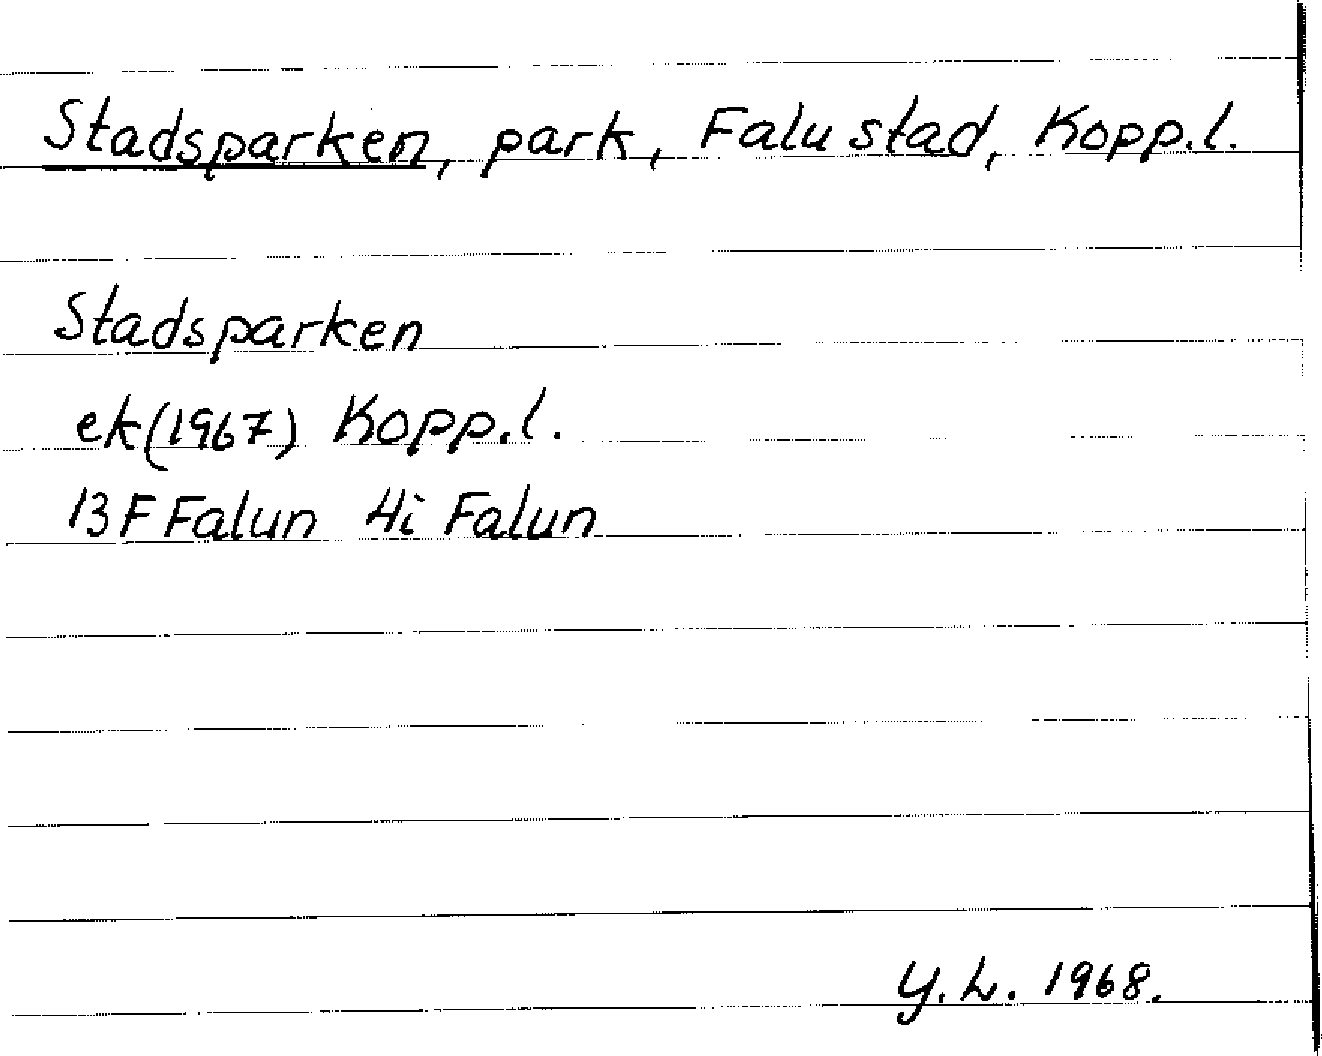 Stadsparken, park, Falu stad, Kopp.l.
Stadsparken
ek (1967) Kopp.l.
13F Falun 4i Falun
Y.L. 1968.